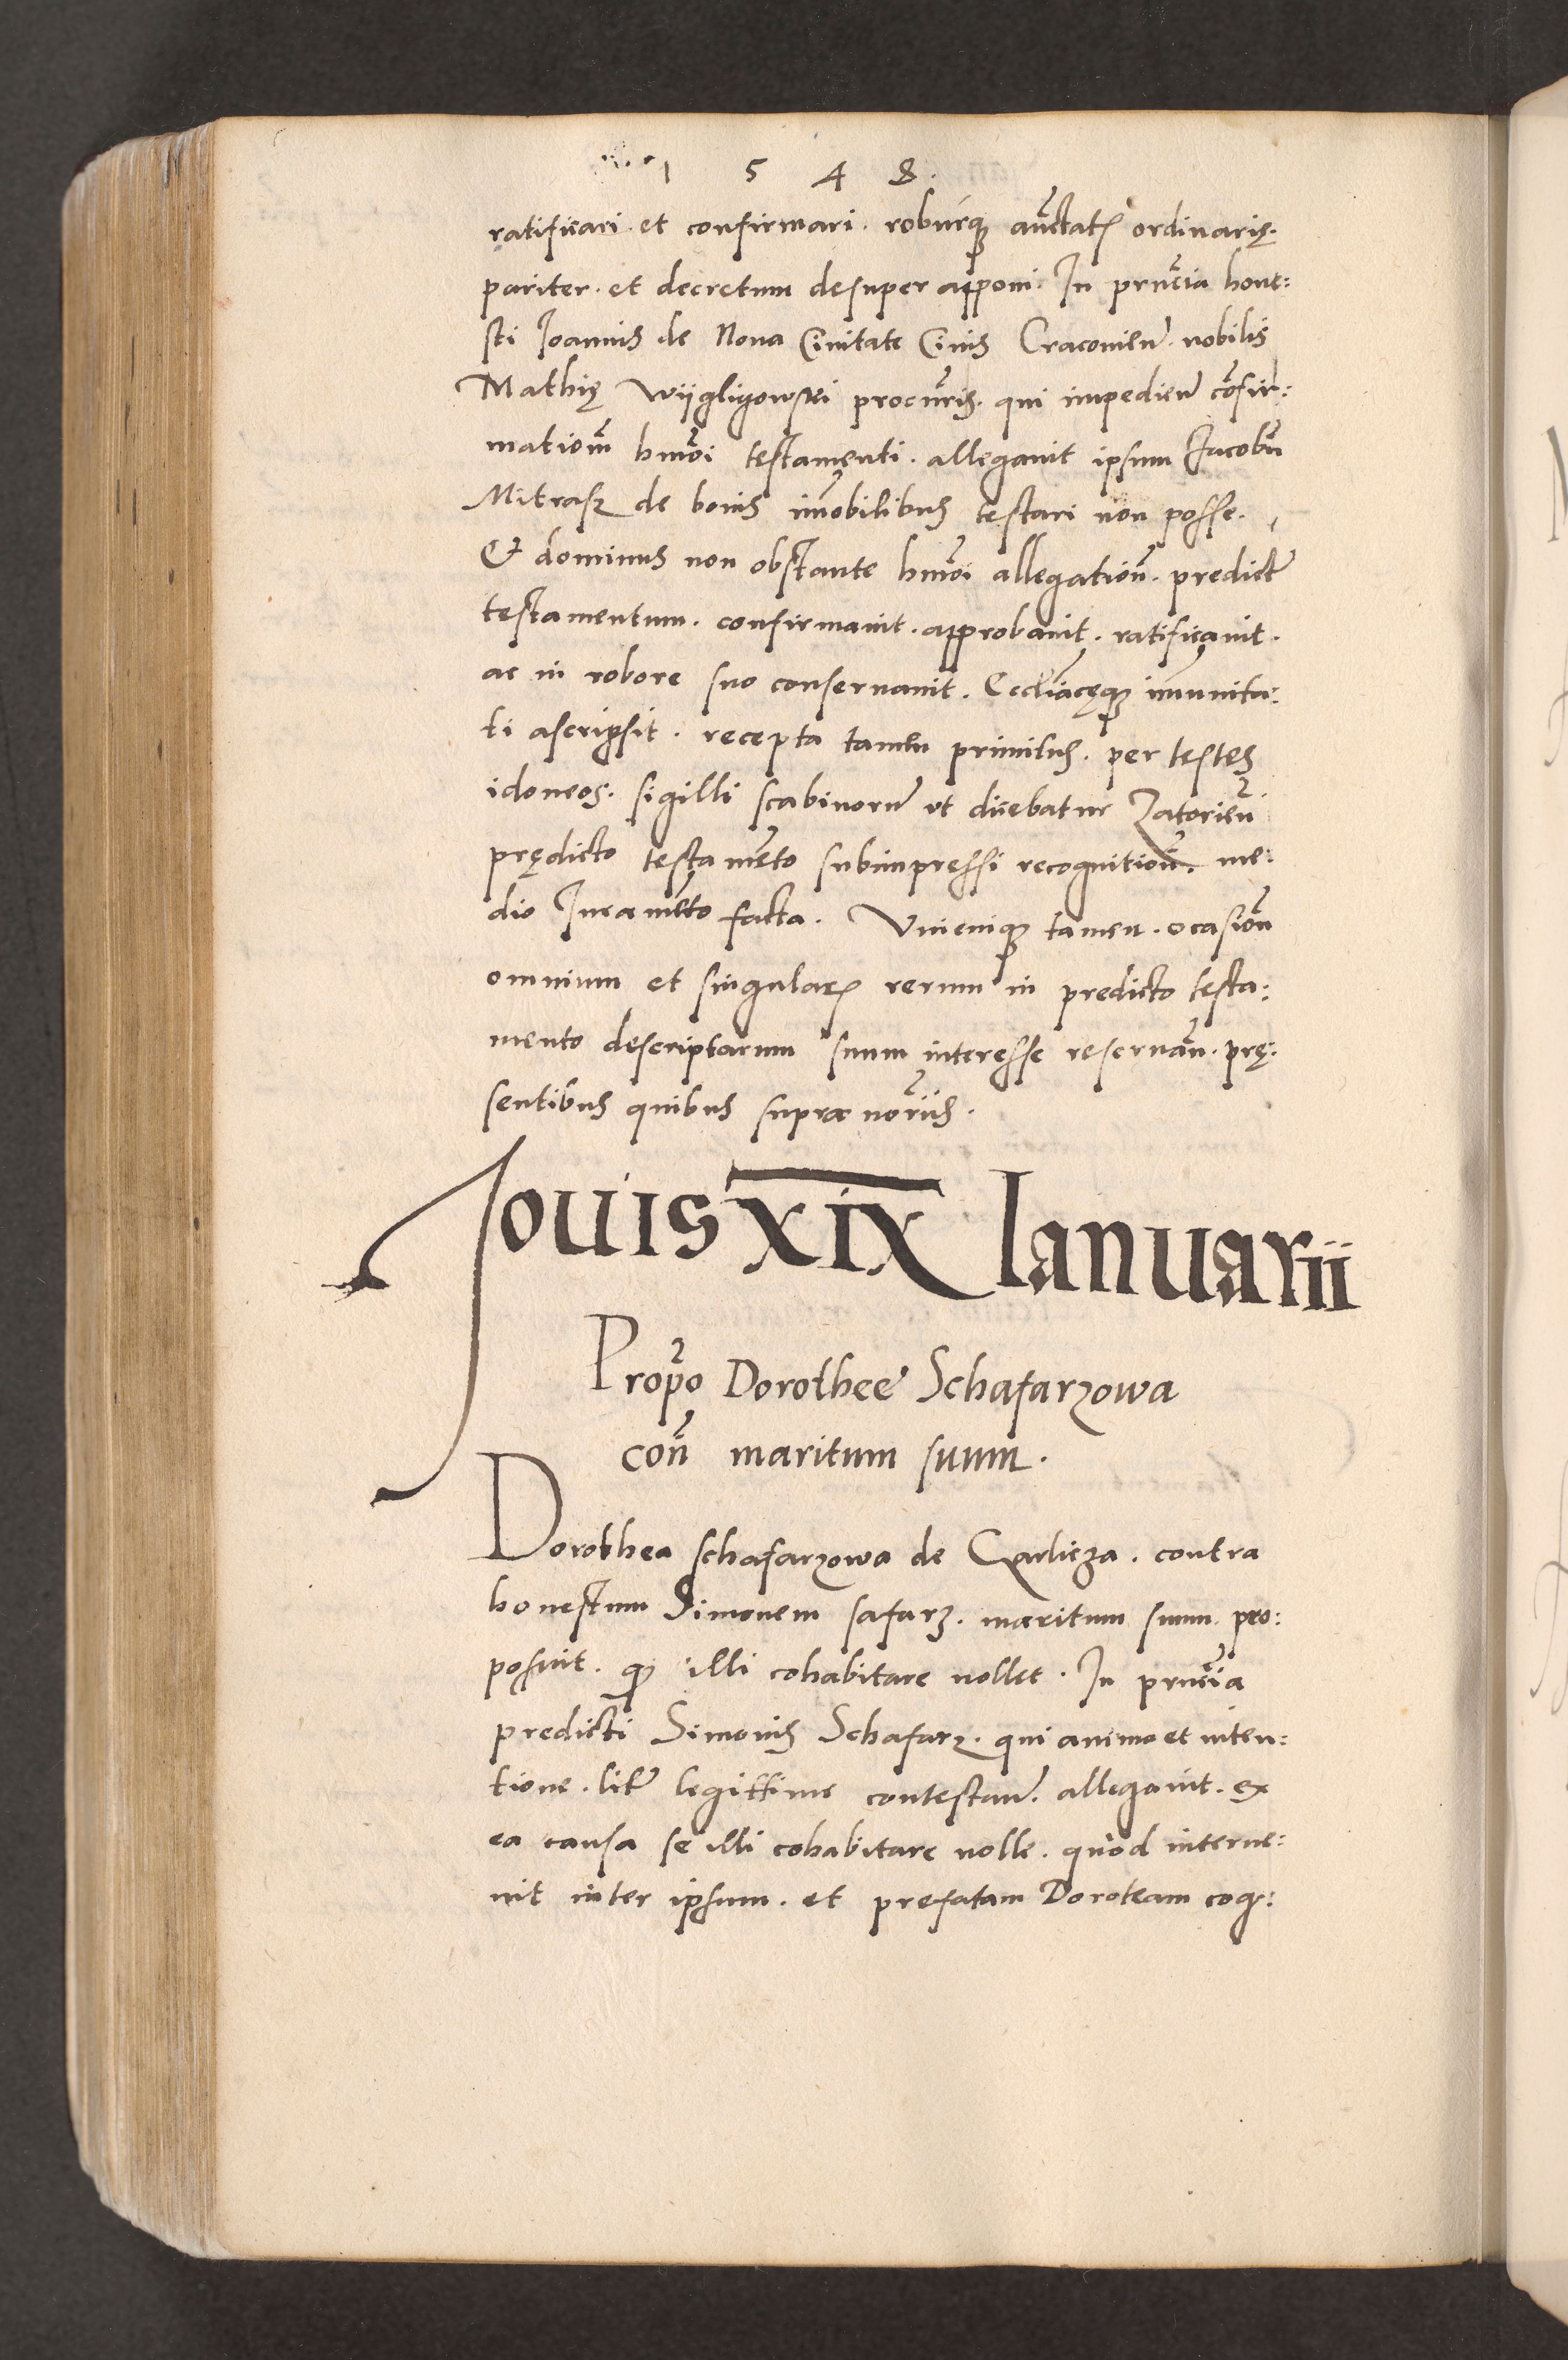 1 5 4 8.
ratificari. et confirmari. roburq₃ auc̄tatꝫ ordinarię.
pariter. et decretum desuper apponi. In prn̄cia hone:
sti Joannis de Noua Ciuitate Ciuis Cracouien̄. nobilis
Mathię Wijgligowski procur̄is. qui impedien̄ cōnfir:
mationē hm̄oi testamenti. allegauit ipsum Jacobū
Mitrasz de bonis im̄obilibus testari non posse.
Et dominus non obstante hm̄oi allegation̄. predictū
testamentum. confirmauit. approbauit. ratificauit.
ac in robore suo conseruauit. Eccl̄iacęq₃ im̄unita:
ti ascripsit. recepta tamen primitus. per testes
idoneos. sigilli scabinorum̄ vt dicebatur Zatorien̄
prędicto testamēto subimpressi recognition̄. me:
dio Iuramēto facta. Vnicuiq₃ tamen. ocasion̄
omnium et singularꝫ rerum in predicto testa:
mento descriptarum suum interesse reseruan̄. prę:
sentibus quibus supra nor̄iis.
Jouis XIX Ianuarii
Prop̄o Dorothee Schafarzowa
con̄ maritum suum.
Dorothea schafarzowa de Qarlicza. contra
honestum Simonem safarz. maritum suum. pro:
posuit. q₃ illi cohabitare nollet. In prn̄cia
predicti Simonis Schafarz. qui animo et inten:
tione. litē legittime contestan̄. allegauit. ex
ea causa se illi cohabitare nolle. quod interue:
nit inter ipsum. et prefatam Doroteam cog: